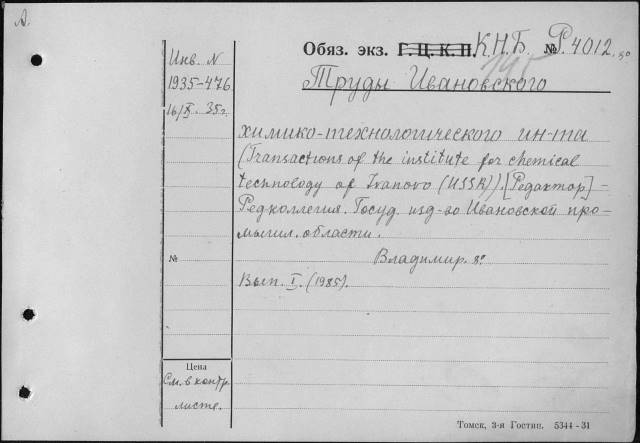 А.
Обяз. экз. Г.Ц.К.П. К.Н.Б. № Р.4012
Инв. N
1935-476
16/X. 35г.
Труды Ивановского
химико-технологического ин-та
(Transactions of the institute for chemical
technology of Ivanovo (USSR)). [Редактор] -
Редколлегия. Госуд. изд-во Ивановской про-
мышл. области.
№
Владимир. 8°
Вып. I. (1935).
Цена
См. в контр.
листе.
Томск, 3-я Гостип. 5344-31